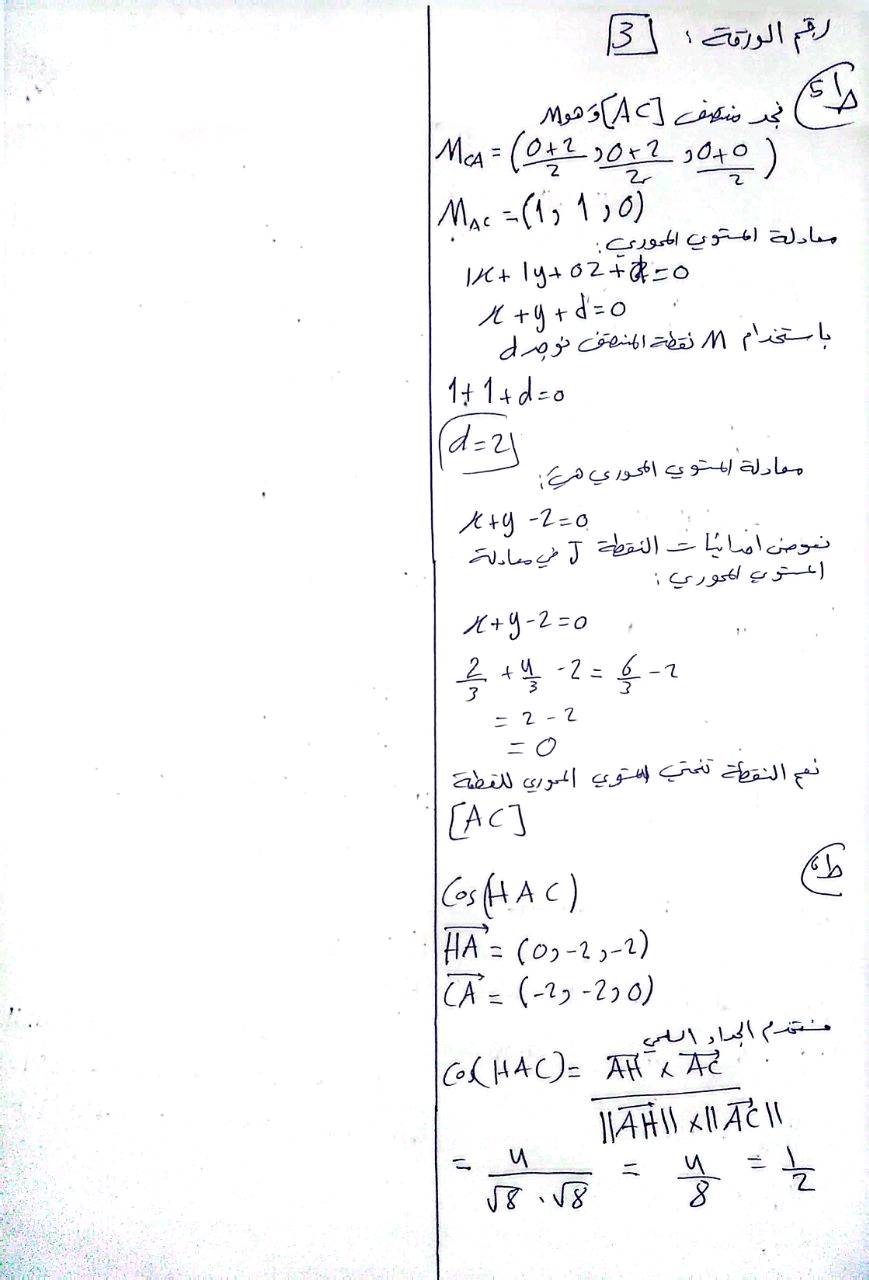 رقم الورقة : 3
ط5
نجد منصف [AC] وهو M
M_CA = (0+2/2 , 0+2/2 , 0+0/2)
M_AC = (1, 1, 0)
معادلة المستوي المحوري:
1x + 1y + 0z + d = 0
x + y + d = 0
باستخدام M نقطة المنتصف نوجد d
1 + 1 + d = 0
d = 2
معادلة المستوي المحوري هي:
x + y - 2 = 0
نعوض احداثيات النقطة J في معادلة
المستوي المحوري :
x + y - 2 = 0
2/3 + 4/3 - 2 = 6/3 - 2
= 2 - 2
= 0
نعم النقطة تنتمي للمستوي المحوري للقطعة
[AC]
ط6
Cos(HAC)
HA = (0, -2, -2)
CA = (-2, -2, 0)
نستخدم الجداء السلمي
Cos(HAC) = AH × AC / ||AH|| × ||AC||
= 4/√8 . √8 = 4/8 = 1/2